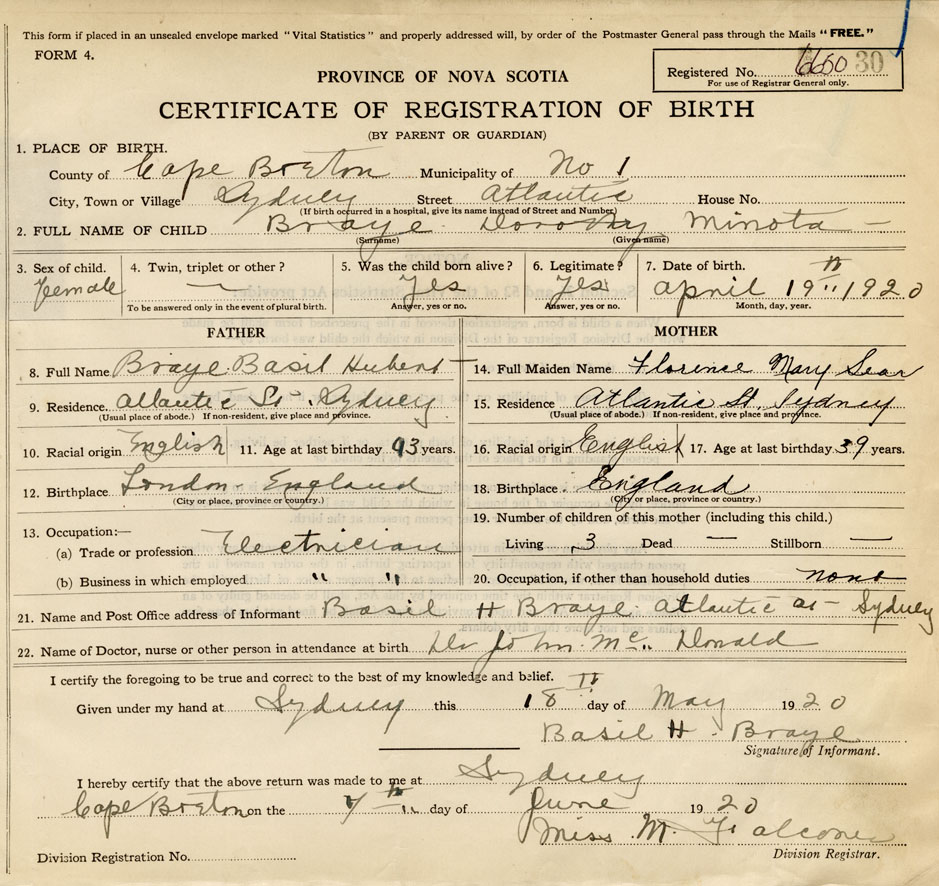 This form if placed in an unsealed envelope marked "Vital Statistics" and properly addressed will, by order of the Postmaster General pass through the Mails "FREE."
FORM 4.
Registered No. 30
For use of Registrar General only.
PROVINCE OF NOVA SCOTIA
CERTIFICATE OF REGISTRATION OF BIRTH
(BY PARENT OR GUARDIAN)
1. PLACE OF BIRTH.
County of Cape Breton Municipality of No 1
City, Town or Village Sydney Street Atlantic House No.
(If birth occurred in a hospital, give its name instead of Street and Number)
2. FULL NAME OF CHILD Braye Dorothy Minota
(Surname) (Given name)
3. Sex of child. 4. Twin, triplet or other? 5. Was the child born alive? 6. Legitimate? 7. Date of birth.
Female — Yes Yes April 19th 1920
To be answered only in the event of plural birth. Answer, yes or no. Answer, yes or no. Month, day, year.
FATHER
8. Full Name Braye Basil Hubert
9. Residence. Atlantic St. Sydney
(Usual place of abode.) If non-resident, give place and province.
10. Racial origin English 11. Age at last birthday 43 years.
12. Birthplace London - England
(City or place, province or country.)
13. Occupation:—
(a) Trade or profession Electrician
(b) Business in which employed " "
MOTHER
14. Full Maiden Name Florence Mary
15. Residence Atlantic St. Sydney
(Usual place of abode.) If non-resident, give place and province.
16. Racial origin English 17. Age at last birthday 39 years.
18. Birthplace England
(City or place, province or country.)
19. Number of children of this mother (including this child.)
Living 3 Dead — Stillborn —
20. Occupation, if other than household duties none
21. Name and Post Office address of Informant Basil H Braye Atlantic Sydney
22. Name of Doctor, nurse or other person in attendance at birth Dr John Mc Donald
I certify the foregoing to be true and correct to the best of my knowledge and belief.
Given under my hand at Sydney this 18th day of May 1920
Basil H. Braye
Signature of Informant.
I hereby certify that the above return was made to me at Sydney
Cape Breton on the 7th day of June 1920
Miss M. Falconer
Division Registration No. Division Registrar.